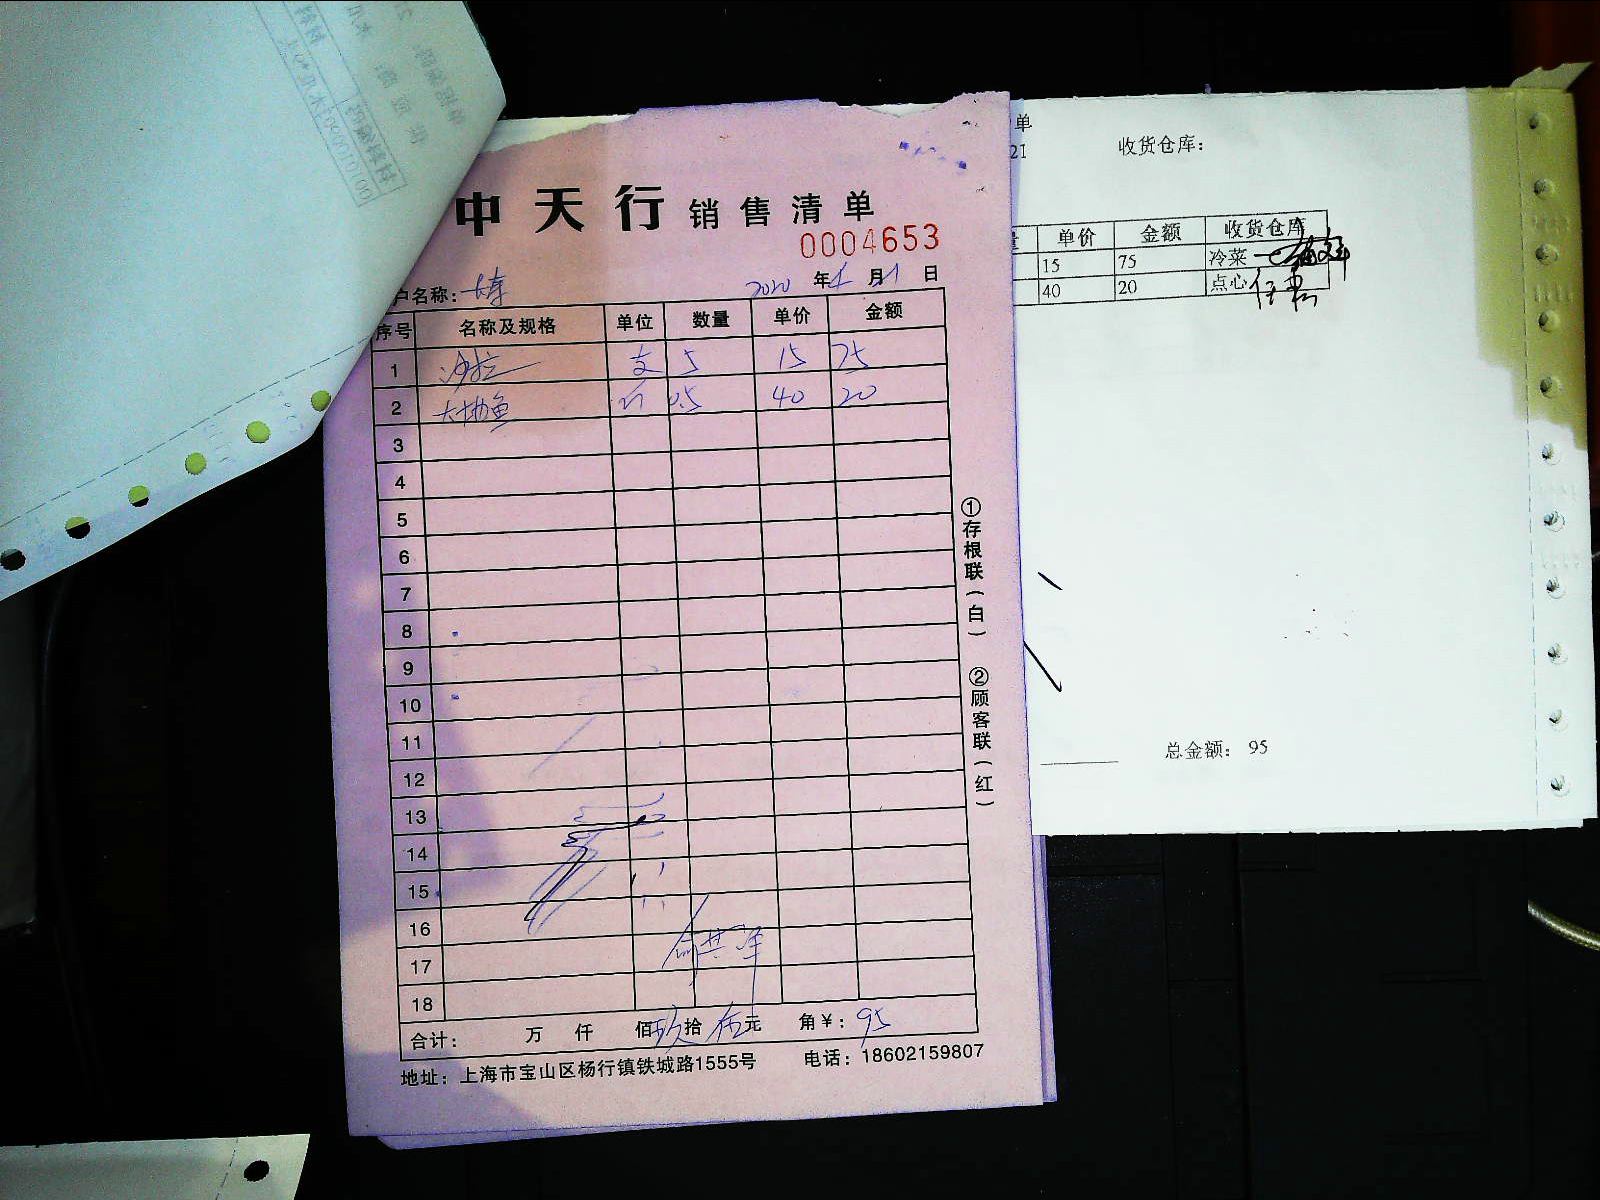 中天行 销售清单
0004653
户名称：
2020年 月1日
序号 名称及规格 单位 数量 单价 金额
1 沙拉 支 5 15 75
2 大地鱼 斤 0.5 40 20
3
4
5
6
7
8
9
10
11
12
13
14
15
16
17
18
合计： 万 仟 佰 玖 拾 伍 元 角 ¥：95
地址：上海市宝山区杨行镇铁城路1555号 电话：18602159807
①存根联(白) ②顾客联(红)
单
21 收货仓库：
单价 金额 收货仓库
15 75 冷菜
40 20 点心
总金额： 95